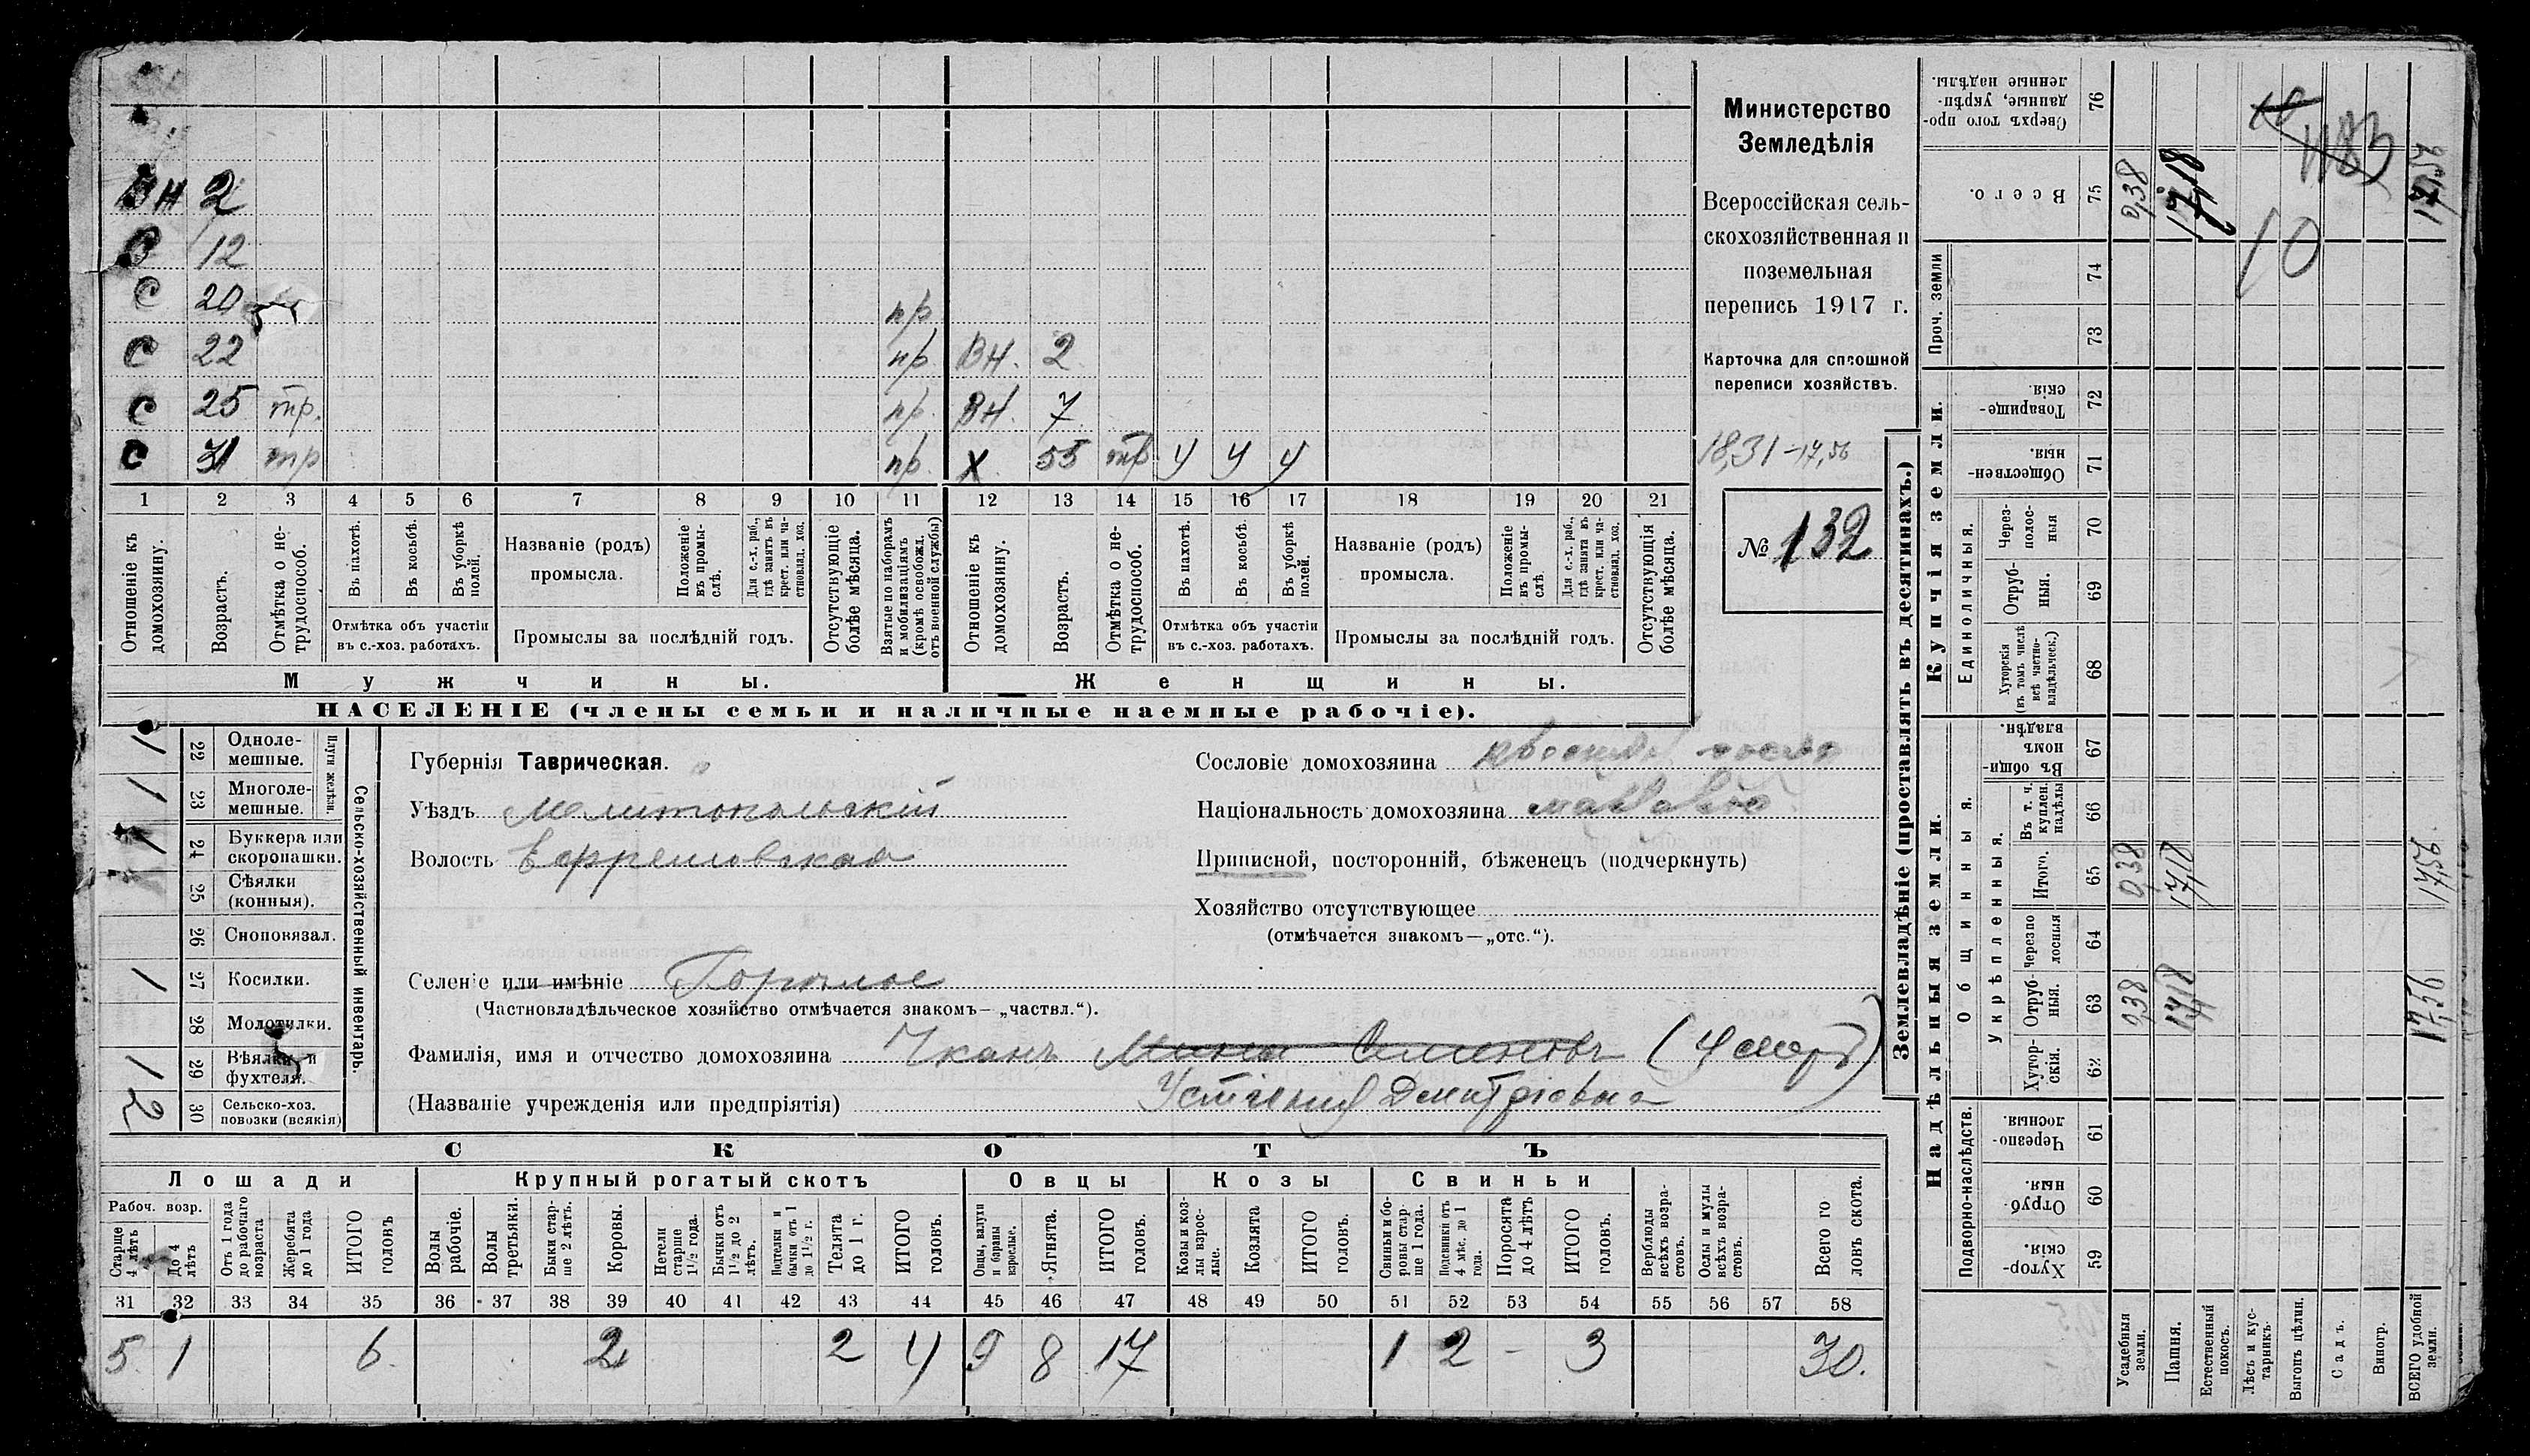 ВН 2
В 12
С 20 пр
С 22 пр ВН. 2
С 25 тр. пр ВН. 7
С 31 тр пр. Х 55 тр у у у
1 2 3 4 5 6 7 8 9 10 11 12 13 14 15 16 17 18 19 20 21
Отношеніе къ домохозяину.
Возрастъ.
Отмѣтка о нетрудоспособ.
Въ пахотѣ.
Въ косьбѣ.
Въ уборкѣ полей.
Отмѣтка объ участіи
въ с.-хоз. работахъ.
Названіе (родъ)
промысла.
Положеніе въ промыслѣ.
Для с.-х. раб., гдѣ занятъ въ крест. или частновлад. хоз.
Промыслы за послѣдній годъ.
Отсутствующіе болѣе мѣсяца.
Взятые по наборамъ и мобилизаціямъ (кромѣ освобожд. отъ военной службы)
Отношеніе къ домохозяину.
Возрастъ.
Отмѣтка о нетрудоспособ.
Въ пахотѣ.
Въ косьбѣ.
Въ уборкѣ полей.
Отмѣтка объ участіи
въ с.-хоз. работахъ.
Названіе (родъ)
промысла.
Положеніе въ промыслѣ
Для с.-х. раб., гдѣ занята въ крест. или частновлад. хоз.
Промыслы за послѣдній годъ.
Отсутствующія болѣе мѣсяца.
Мужчины.
Женщины.
НАСЕЛЕНІЕ (члены семьи и наличные наемные рабочіе).
Министерство
Земледѣлія
Всероссійская сель-
скохозяйственная и
поземельная
перепись 1917 г.
Карточка для сплошной
переписи хозяйствъ.
18,31 - 17,56
№ 132
Сельско-хозяйственный инвентарь.
Плуги желѣзн.
1 22 Одноле-
мешные.
1 23 Многоле-
мешные.
1 24 Буккера или
скоропашки.
25 Сѣялки
(конныя).
26 Сноповязал.
1 27 Косилки.
28 Молотилки.
1 29 Вѣялки и
фухтеля.
2 30 Сельско-хоз.
повозки (всякія)
Губернія Таврическая.
Уѣздъ Мелитопольскій
Волость Ефремовская
Селеніе или имѣніе Горѣлое
(Частновладѣльческое хозяйство отмѣчается знакомъ—„частвл.“).
Фамилія, имя и отчество домохозяина Чканъ Мины Семеновъ (Умеръ)
(Названіе учрежденія или предпріятія) Устинія Дмитріевна
Сословіе домохозяина
Національность домохозяина
Приписной, посторонній, бѣженецъ (подчеркнуть)
Хозяйство отсутствующее
(отмѣчается знакомъ—„отс.“).
СКОТЪ
Лошади
Крупный рогатый скотъ
Овцы
Козы
Свиньи
Рабоч. возр.
Старше 4 лѣтъ
До 4 лѣтъ
Отъ 1 года до рабочаго возраста
Жеребята до 1 года
ИТОГО головъ
Волы рабочіе.
Волы третьяки.
Быки старше 2 лѣтъ.
Коровы.
Нетели старше 1½ года.
Бычки отъ 1½ до 2 лѣтъ.
Подтелки и бычки отъ 1 до 1½ г.
Телята до 1 г.
ИТОГО головъ.
Овцы, валухи и бараны взрослые.
Ягнята.
ИТОГО головъ.
Козы и козлы взрослые.
Козлята
ИТОГО головъ.
Свиньи и боровы старше 1 года.
Подсвинки отъ 4 мѣс. до 1 года.
Поросята до 4 лѣтъ
ИТОГО головъ.
Верблюды всѣхъ возрастовъ.
Ослы и мулы всѣхъ возрастовъ.
Всего головъ скота.
31 32 33 34 35 36 37 38 39 40 41 42 43 44 45 46 47 48 49 50 51 52 53 54 55 56 57 58
5 1 6. 2 2 4 9 8 17 1 2 - 3 30.
Землевладѣніе (проставлять въ десятинахъ.)
Надѣльныя земли.
Купчія земли.
Проч. земли
Подворно-наслѣдств.
Общинныя.
Укрѣпленныя.
Единоличныя.
Сверхъ того проданные, укрѣпленные надѣлы. 76
Всего. 75 0,38 17,18
74
73
Товарищескія. 72
Общественныя. 71
Черезполосныя 70
Отрубныя. 69
Хуторскія (въ томъ числѣ всѣ частновладѣльческ.) 68
Въ общиномъ владѣн. 67
Въ т. ч. куплен. надѣлы 66
Итого. 65 0,38 17,18 17,56
Черезполосныя 64
Отрубныя. 63 0,38 17,18 17,56
Хуторскія. 62
Черезполосныя. 61
Отрубныя. 60
Хуторскія. 59
Усадебныя земли.
Пашня.
Естественный покосъ.
Лѣсъ и кустарникъ.
Выгонъ цѣлин.
Садъ.
Виногр.
ВСЕГО удобной земли.
1183
10